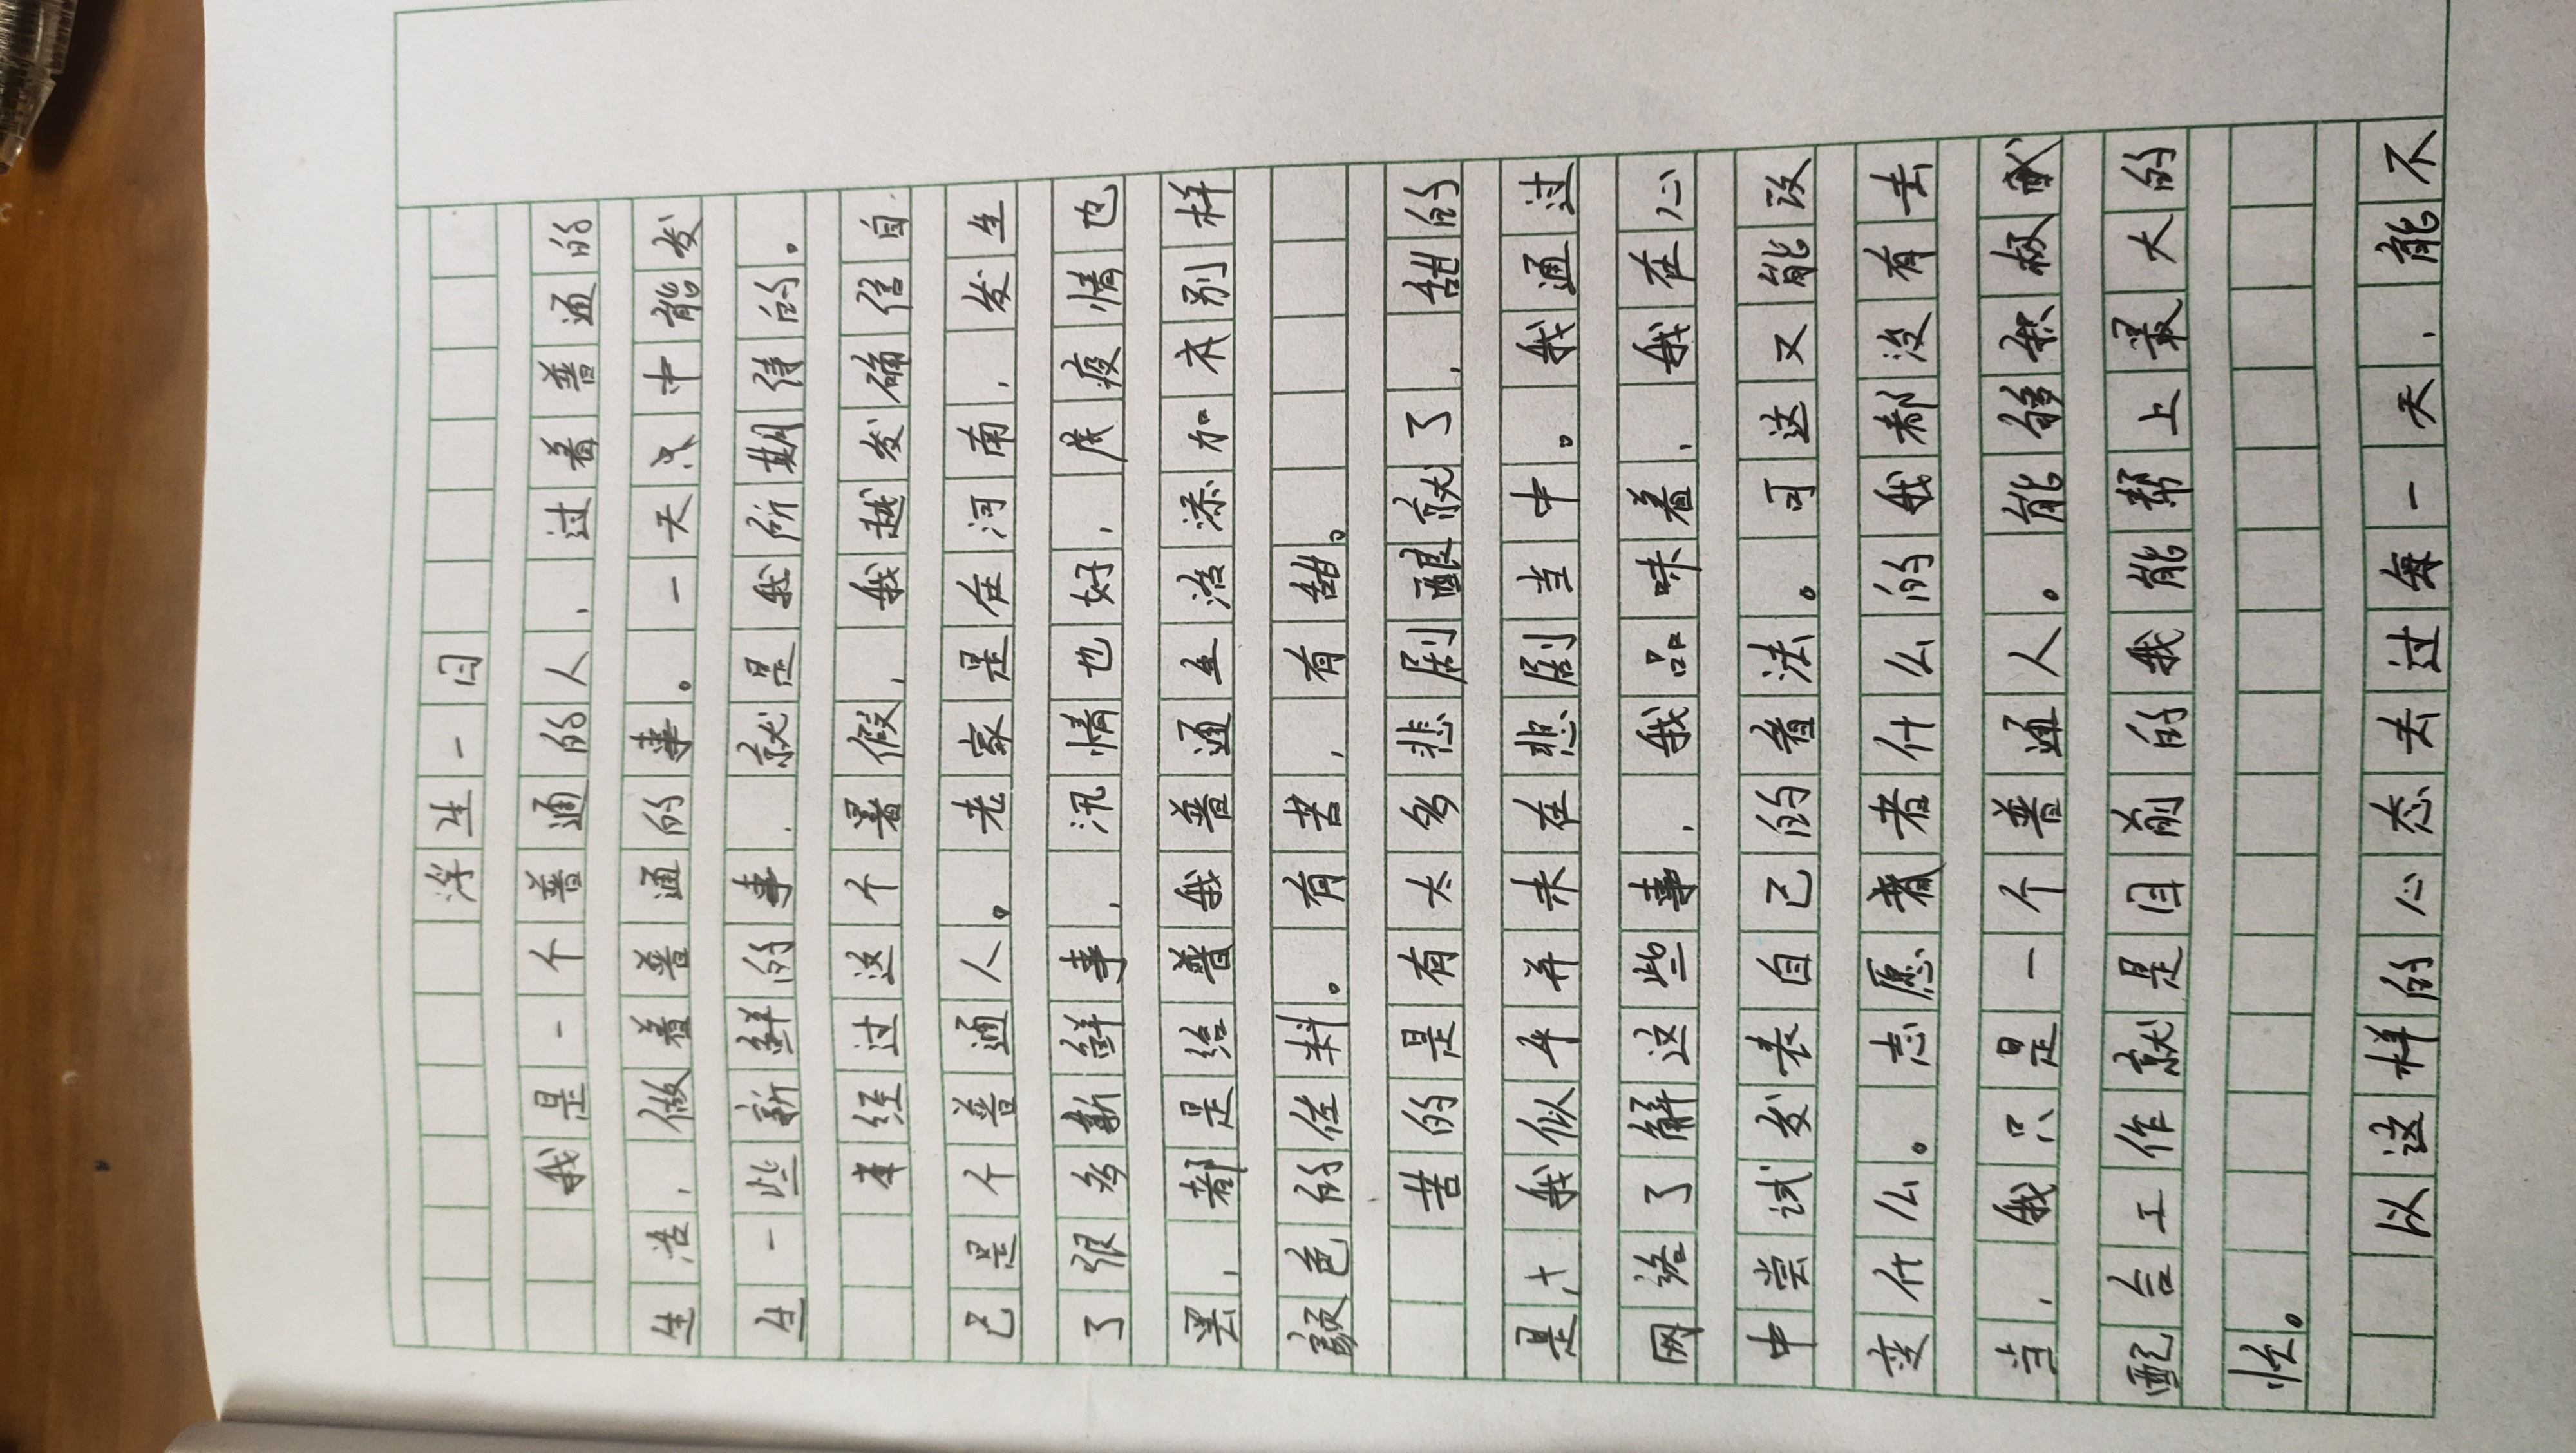 浮生一日
我是一个普通的人，过着普通的
生活，做着普通的事。一天只中能发
生一些新鲜的事，就是我所期待的。
经过这个暑假，我越发确信自
己是个普通人。老家是在河南，发生
了很多新鲜事，汛情也好，疫情也
罢，都是给我普通生活添加不别样
颜色的佐料。有苦，有甜。
苦的是有太多悲剧酿就了，甜的
是，我似乎并未在悲剧当中。我通过
网络了解这些事，我品味着，我在心
中尝试发表自己的看法。可这又能改
变什么。志愿者什么的我都没有去
当，我只是一个普通人。能够积极
配合工作就是目前的我能帮上最大的
忙。
以这样的心态去过每一天，能不